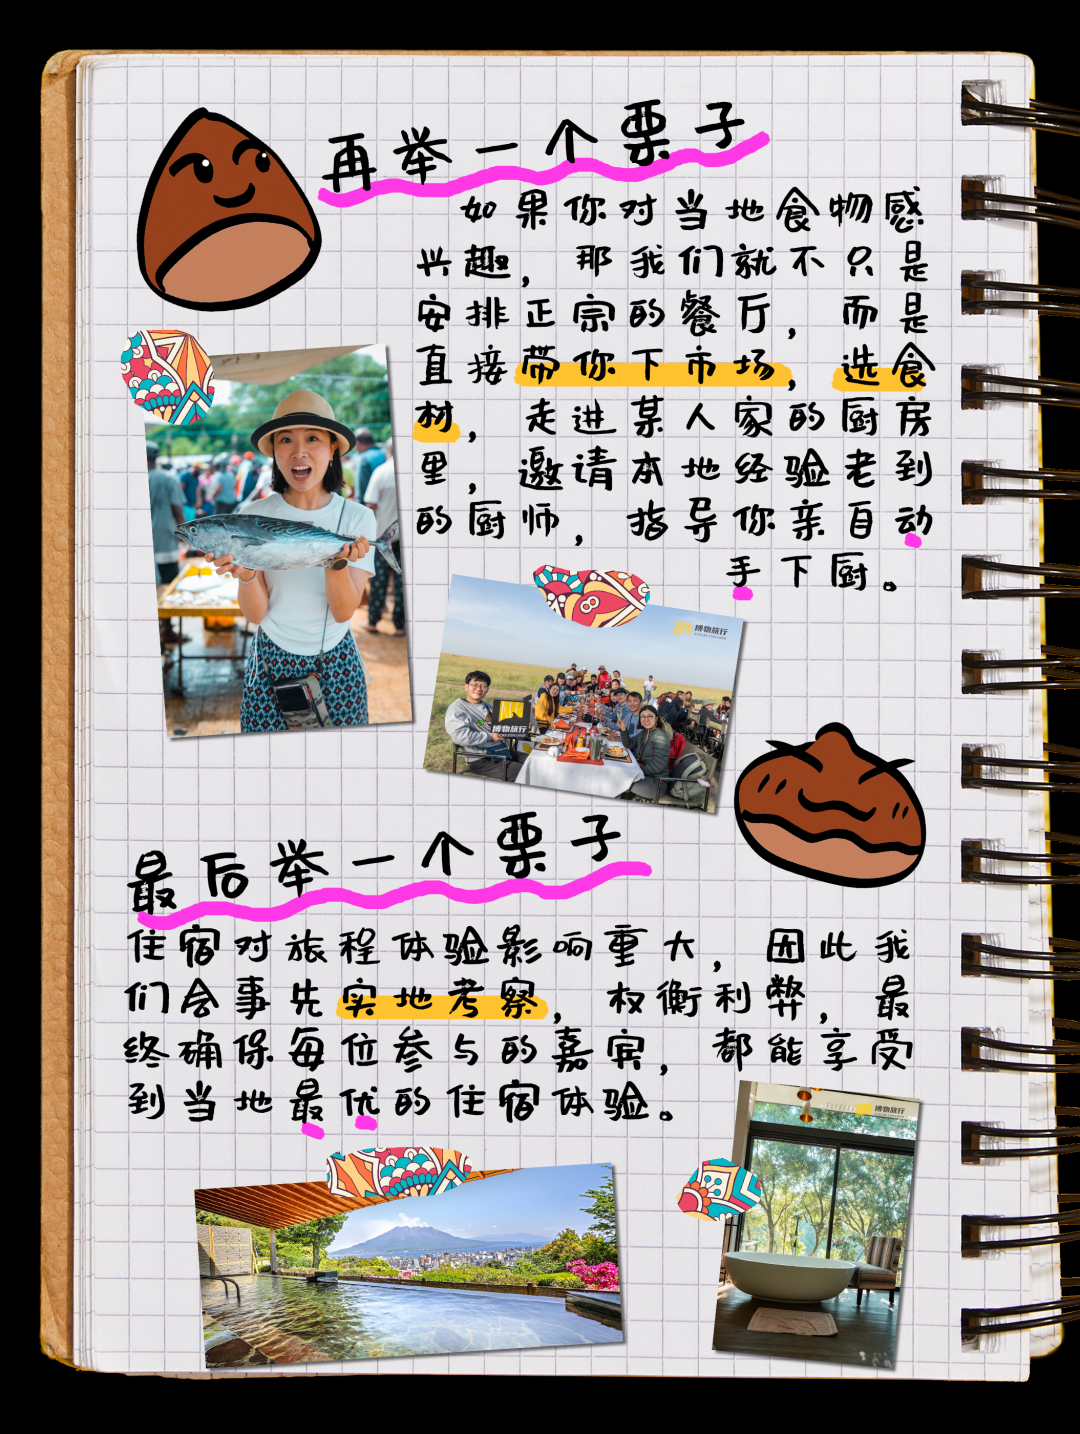 再举一个栗子
如果你对当地食物感
兴趣，那我们就不只是
安排正宗的餐厅，而是
直接带你下市场，选食
材，走进某人家的厨房
里，邀请本地经验老到
的厨师，指导你亲自动
手下厨。
博物旅行
博物旅行
最后举一个栗子
住宿对旅程体验影响重大，因此我
们会事先实地考察，权衡利弊，最
终确保每位参与的嘉宾，都能享受
到当地最优的住宿体验。
博物旅行